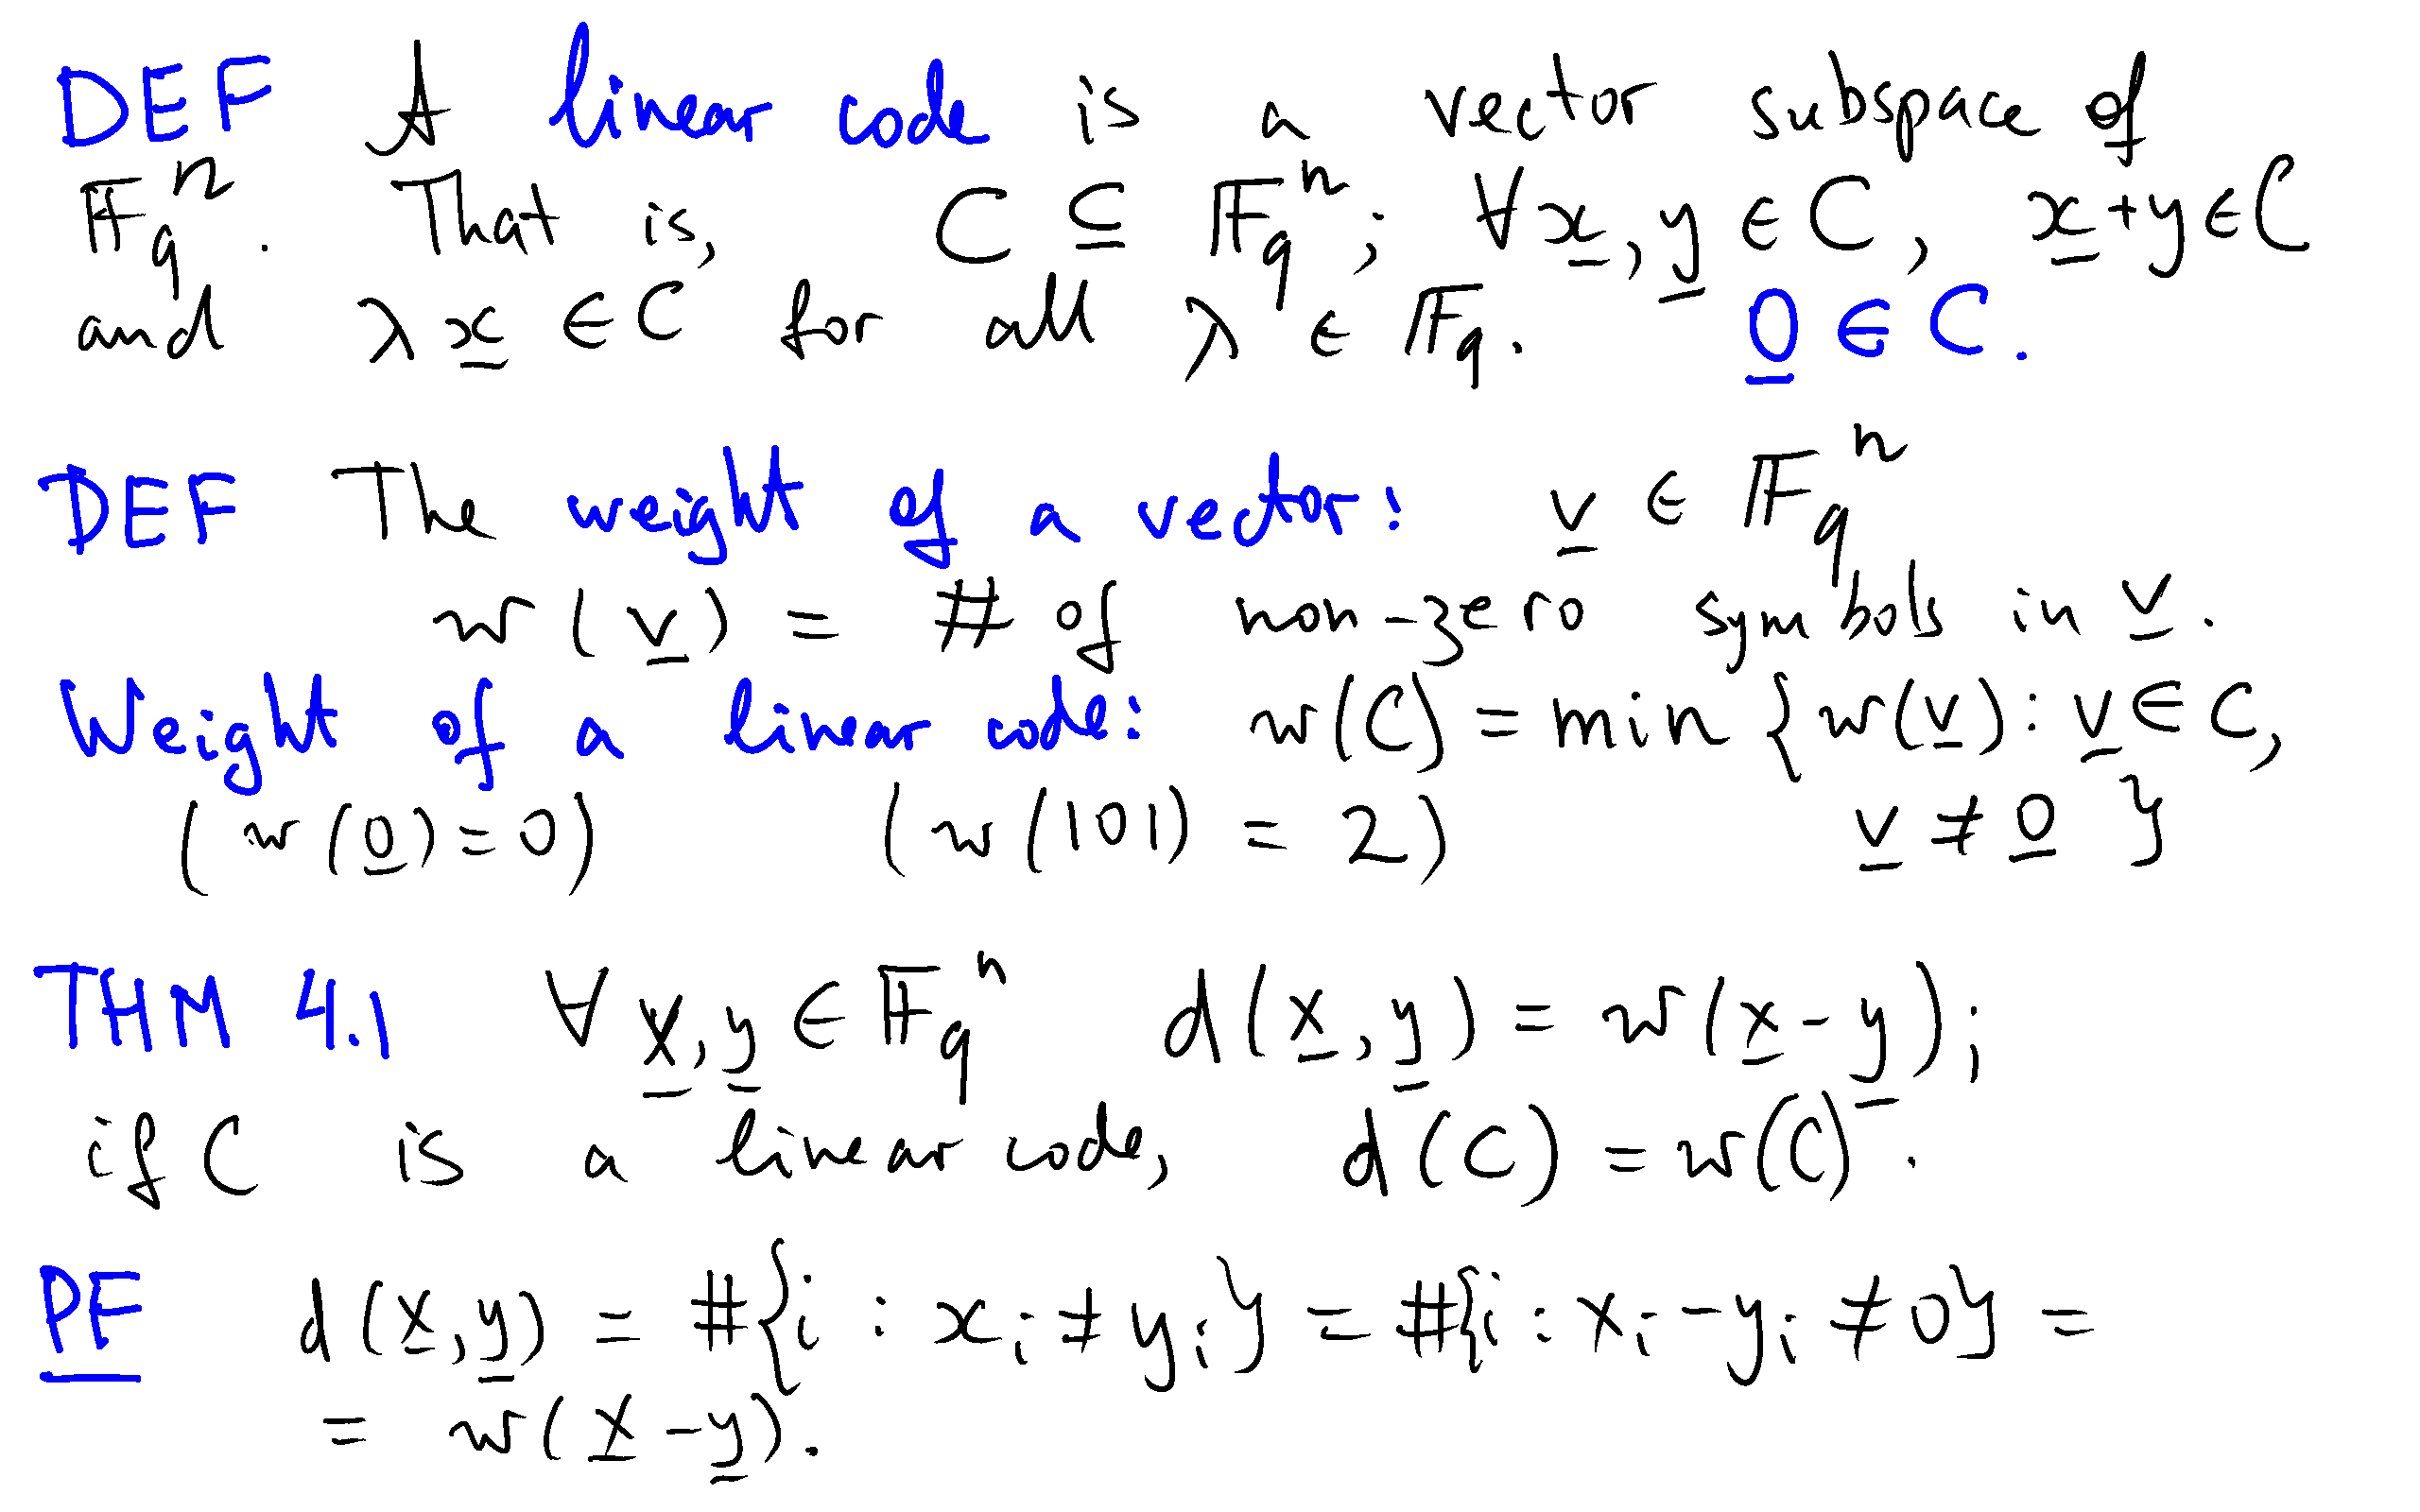 DEF A linear code is a vector subspace of
𝔽_q^n. That is, C ⊆ 𝔽_q^n; ∀x̲, y̲ ∈ C, x̲+y ∈ C
and λx̲ ∈ C for all λ ∈ 𝔽_q. 0̲ ∈ C.
DEF The weight of a vector: v̲ ∈ 𝔽_q^n
w(v̲) = # of non-zero symbols in v̲.
Weight of a linear code: w(C) = min {w(v̲) : v̲ ∈ C,
(w(0̲)=0) (w(101) = 2) v̲ ≠ 0̲ }
THM 4.1 ∀x̲, y̲ ∈ 𝔽_q^n d(x̲, y̲) = w(x̲-y̲);
if C is a linear code, d(C) = w(C).
PF d(x̲,y̲) = #{i : x_i ≠ y_i} = #{i : x_i - y_i ≠ 0} =
= w(x̲ - y̲).